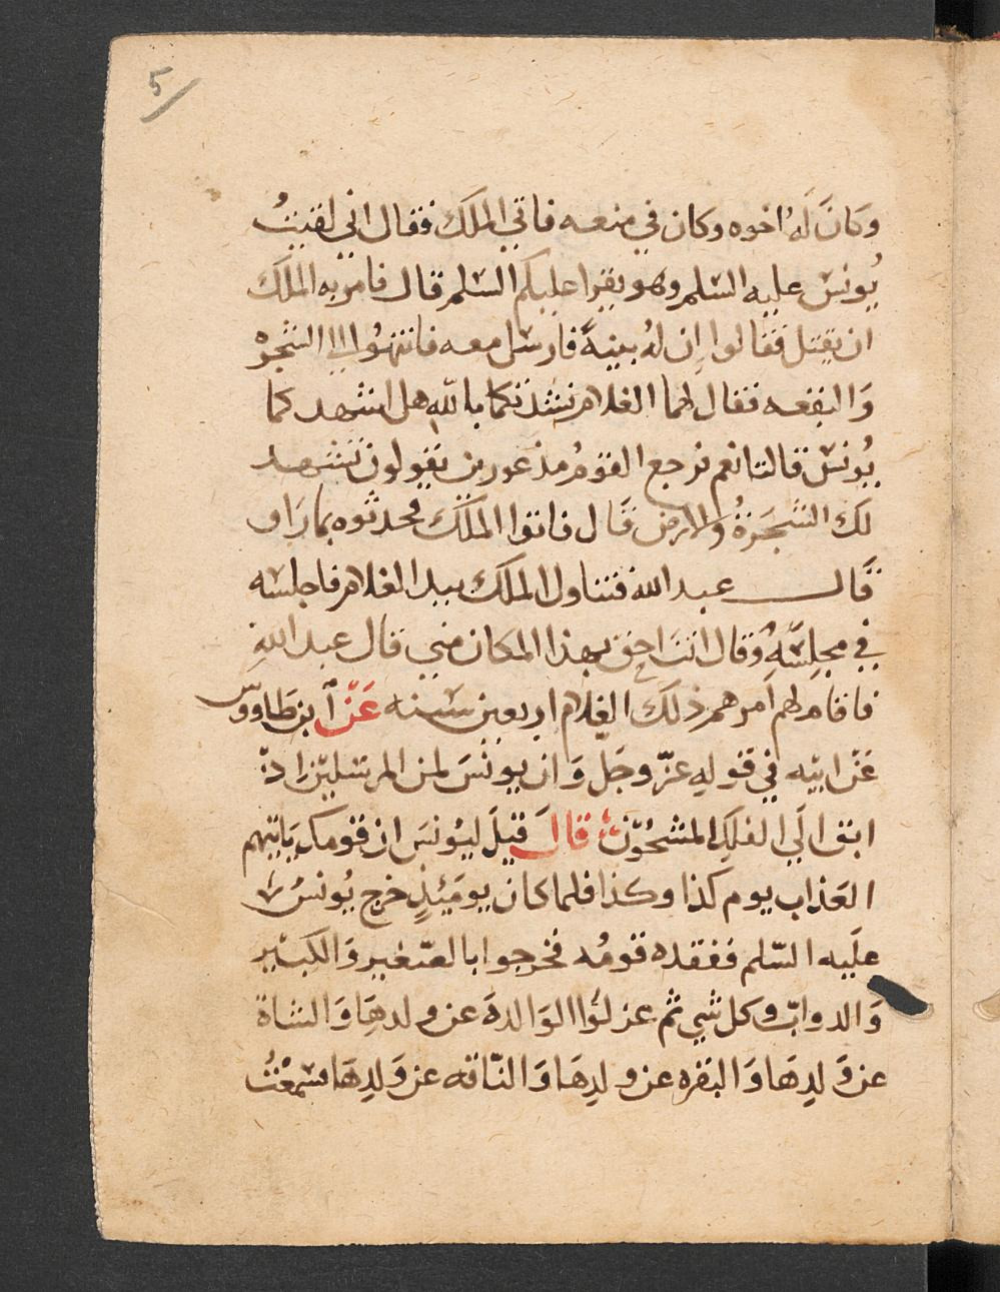 5
وكَانَ لَهُ اخوه وكان في منعه فاتي الملَك فقال اني لقيتُ
يُونسَ عليه السَلم وهو يقرا عليكم السَلم قال فامر به الملَك
ان يقتل فقالوا اِن لهُ بينةً فارسَل معه فانتهُوا الي الشجره
وَالبقعه فقال لهما الغلام نشدتكما باللّهِ هل اشهدكما
يُونسَ قالتا نعم فرجع القومُ مذعورين يقولون تشهد
لك الشجَرَةُ والارض قَال فاتوا الملَك فحدثوه بما رَاو
قَال عبد الله فتناول الملك بيد الغلام فاجلسَه
في مجلِسَهِ وقال انتَ احق بهذا المكان مني قال عبد اللهِ
فاقام لهم اَمرهم ذلَك الغلام اربعين سَنه عَنْ ابن طَاووس
عَنْ ابيه في قولهِ عزّ وجَل وَان يونسَ لمن المرسَليْن اذْ
ابق الَي الفلكِ المشحُوْن قالَ قيلَ ليُونسَ ان قومك يَاتيهم
العَذاب يوم كذا وكذا فلما كان يومَئِذٍ خرج يُونسُ
علَيه السّلم ففقده قومُه فخرجوا بالصّغير وَالكبير
وَالدوابّ وكل شي ثم عزلوُا الوَالدةَ عن ولدِهَا وَالشاةَ
عن وَلدِهَا وَالبقره عن ولدِهَا وَالنّاقه عن وَلدِهَا فسَمعْتُ